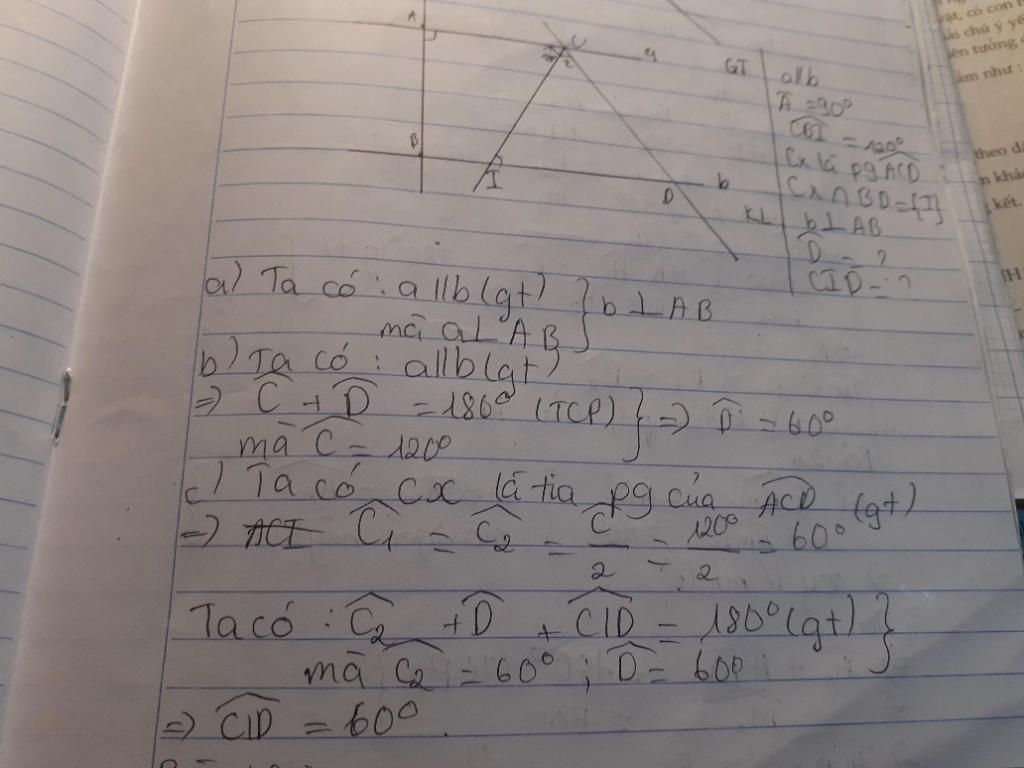 A
C
a
B
I
D
b
GT
a//b
Â = 90°
= 120°
Cx là pg ACD
Cx ∩ BD = {I}
KL
b ⊥ AB
D̂ = ?
CID = ?
a) Ta có : a//b (gt)
mà a ⊥ AB } b ⊥ AB
b) Ta có : a//b (gt)
=> Ĉ + D̂ = 180° (TCP)
mà Ĉ = 120° } => D̂ = 60°
c) Ta có Cx là tia pg của ACD (gt)
=> Ĉ1 = Ĉ2 = Ĉ/2 = 120°/2 = 60°
Ta có : Ĉ2 + D̂ + CID = 180° (gt)
mà Ĉ2 = 60° ; D̂ = 60 }
=> CID = 60°.